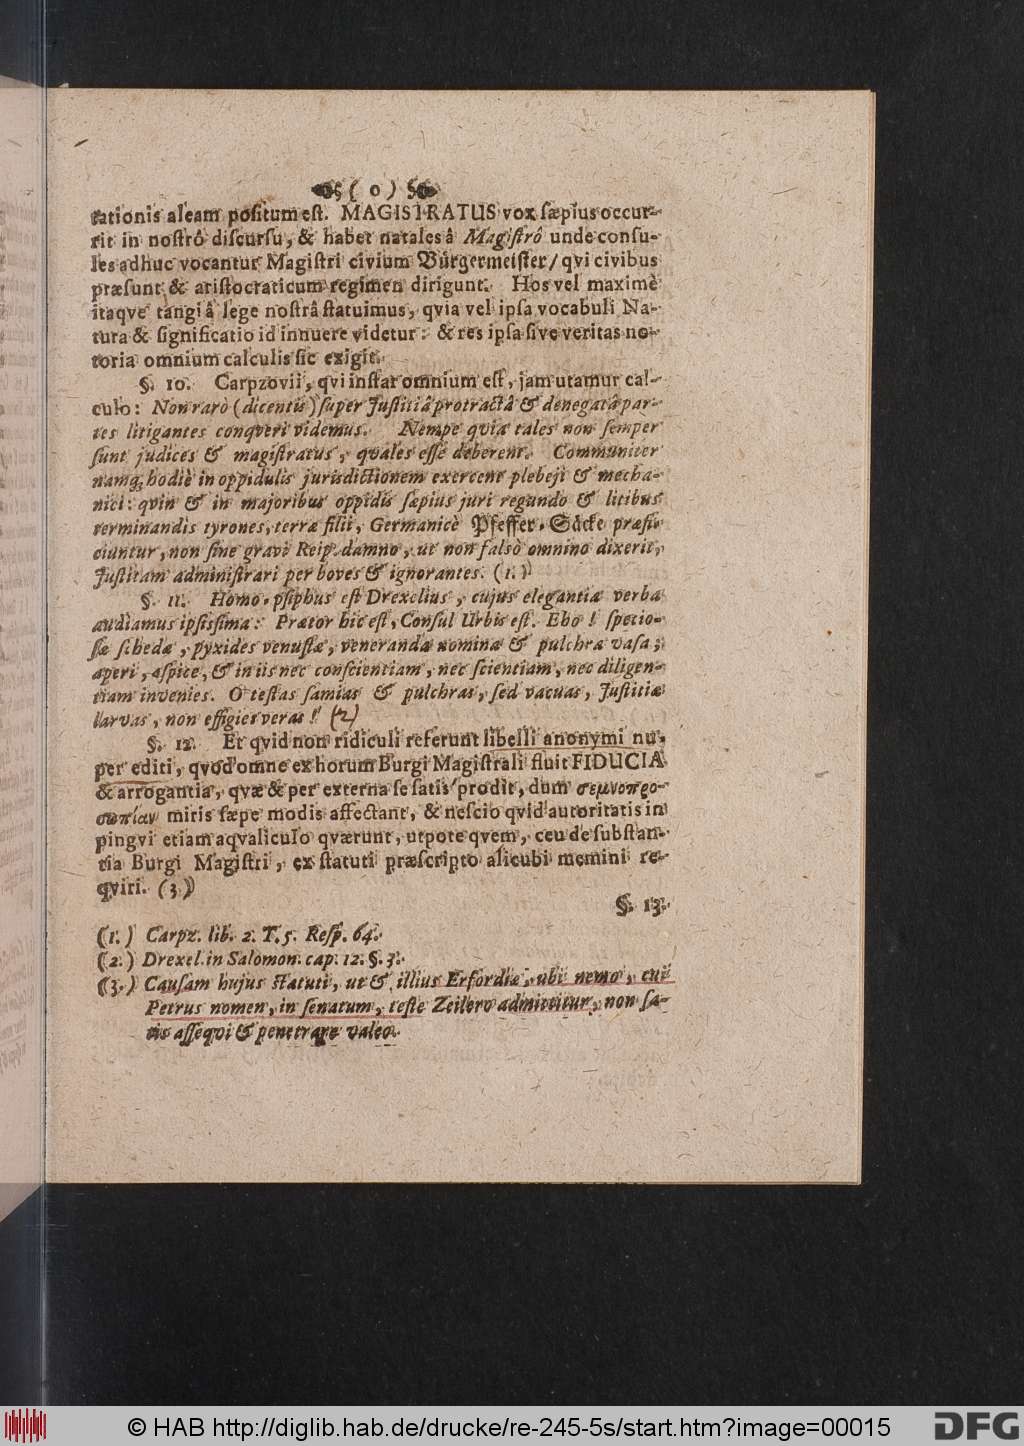 ( 0 )
tationis aleam positum est. MAGISTRATUS vox sæpius occur-
rit in nostrô discursu, & habet natales â Magistrô unde consu-
les adhuc vocantur Magistri civium Bürgermeister/ qvi civibus
præsunt & aristocraticum regimen dirigunt. Hos vel maximè
itaqve tangi â lege nostrâ statuimus, qvia vel ipsa vocabuli Na-
tura & significatio id innuere videtur: & res ipsa sive veritas no-
toria omnium calculis sic exigit.
§. 10. Carpzovii, qvi instar omnium est, jam utamur cal-
culo: Non rarò (dicentis) super Justitiâ protractâ & denegatâ par-
tes litigantes conqveri videmus. Nempe qvia tales non semper
sunt judices & magistratus, qvales esse deberent. Communiter
namq; hodiè in oppidulis jurisdictionem exercent plebeji & mecha-
nici: qvin & in majoribus oppidis sæpius juri regundo & litibus
terminandis tyrones, terræ filii, Germanicè Pfeffer-Säcke præfi-
ciuntur, non sine gravi Reip. damno, ut non falsò omnino dixerit,
Justitiam administrari per boves & ignorantes. (1.)
§. 11. Homo-psiphus est Drexelius, cujus elegantiæ verba
audiamus ipsissima: Prætor hic est, Consul Urbis est. Eho! specio-
sæ schedæ, pyxides venustæ, veneranda nomina & pulchra vasa;
aperi, aspice, & in iis nec conscientiam, nec scientiam, nec diligen-
tiam invenies. O testas samias & pulchras, sed vacuas, Justitiæ
larvas, non effigies veras! (2)
§. 12. Et qvid non ridiculi referunt libelli anonymi nu-
per editi, qvod omne ex horum Burgi Magistrali fluit FIDUCIA
& arrogantia, qvæ & per externa se satis prodit, dum σεμνοπρο-
σωπίαν miris sæpe modis affectant, & nescio qvid autoritatis in
pingvi etiam aqvaliculo qværunt, utpote qvem, ceu de substan-
tia Burgi Magistri, ex statuti præscripto alicubi memini re-
qviri. (3)
§. 13.
(1.) Carpz. lib. 2. T. 5. Resp. 64.
(2.) Drexel. in Salomon. cap. 12. §. 3.
(3.) Causam hujus statuti, ut & illius Erfordiæ, ubi nemo, cui
Petrus nomen, in senatum, teste Zeilero admittitur, non sa-
tis assequi & penetrare valeo.
© HAB http://diglib.hab.de/drucke/re-245-5s/start.htm?image=00015
DFG